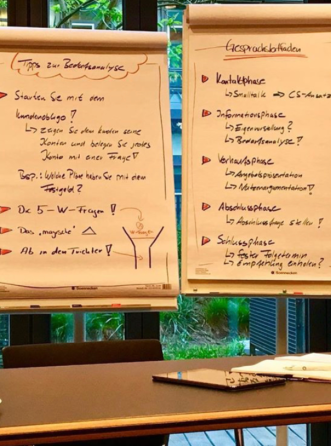 Tipps zur Bedarfsanalyse
Starten Sie mit dem
Kundendialog!
↳ zeigen Sie dem Kunden seine
Konten und belegen Sie jedes
Konto mit einer Frage!
Bsp.: Welche Pläne haben Sie mit dem
Festgeld?
Die 5-W-Fragen!
Das "magische" △
Ab in den Trichter!
Gesprächsleitfaden
Kontaktphase
↳ Smalltalk ⇒
Informationsphase
↳ Eigenvorstellung?
↳ Bedarfsanalyse!
Verkaufsphase
↳ Angebotspräsentation
↳ Nutzenargumentation!
Abschlussphase
↳ Abschlussfrage stellen!
Schlussphase
↳ fester Folgetermin
↳ Empfehlung erhalten?